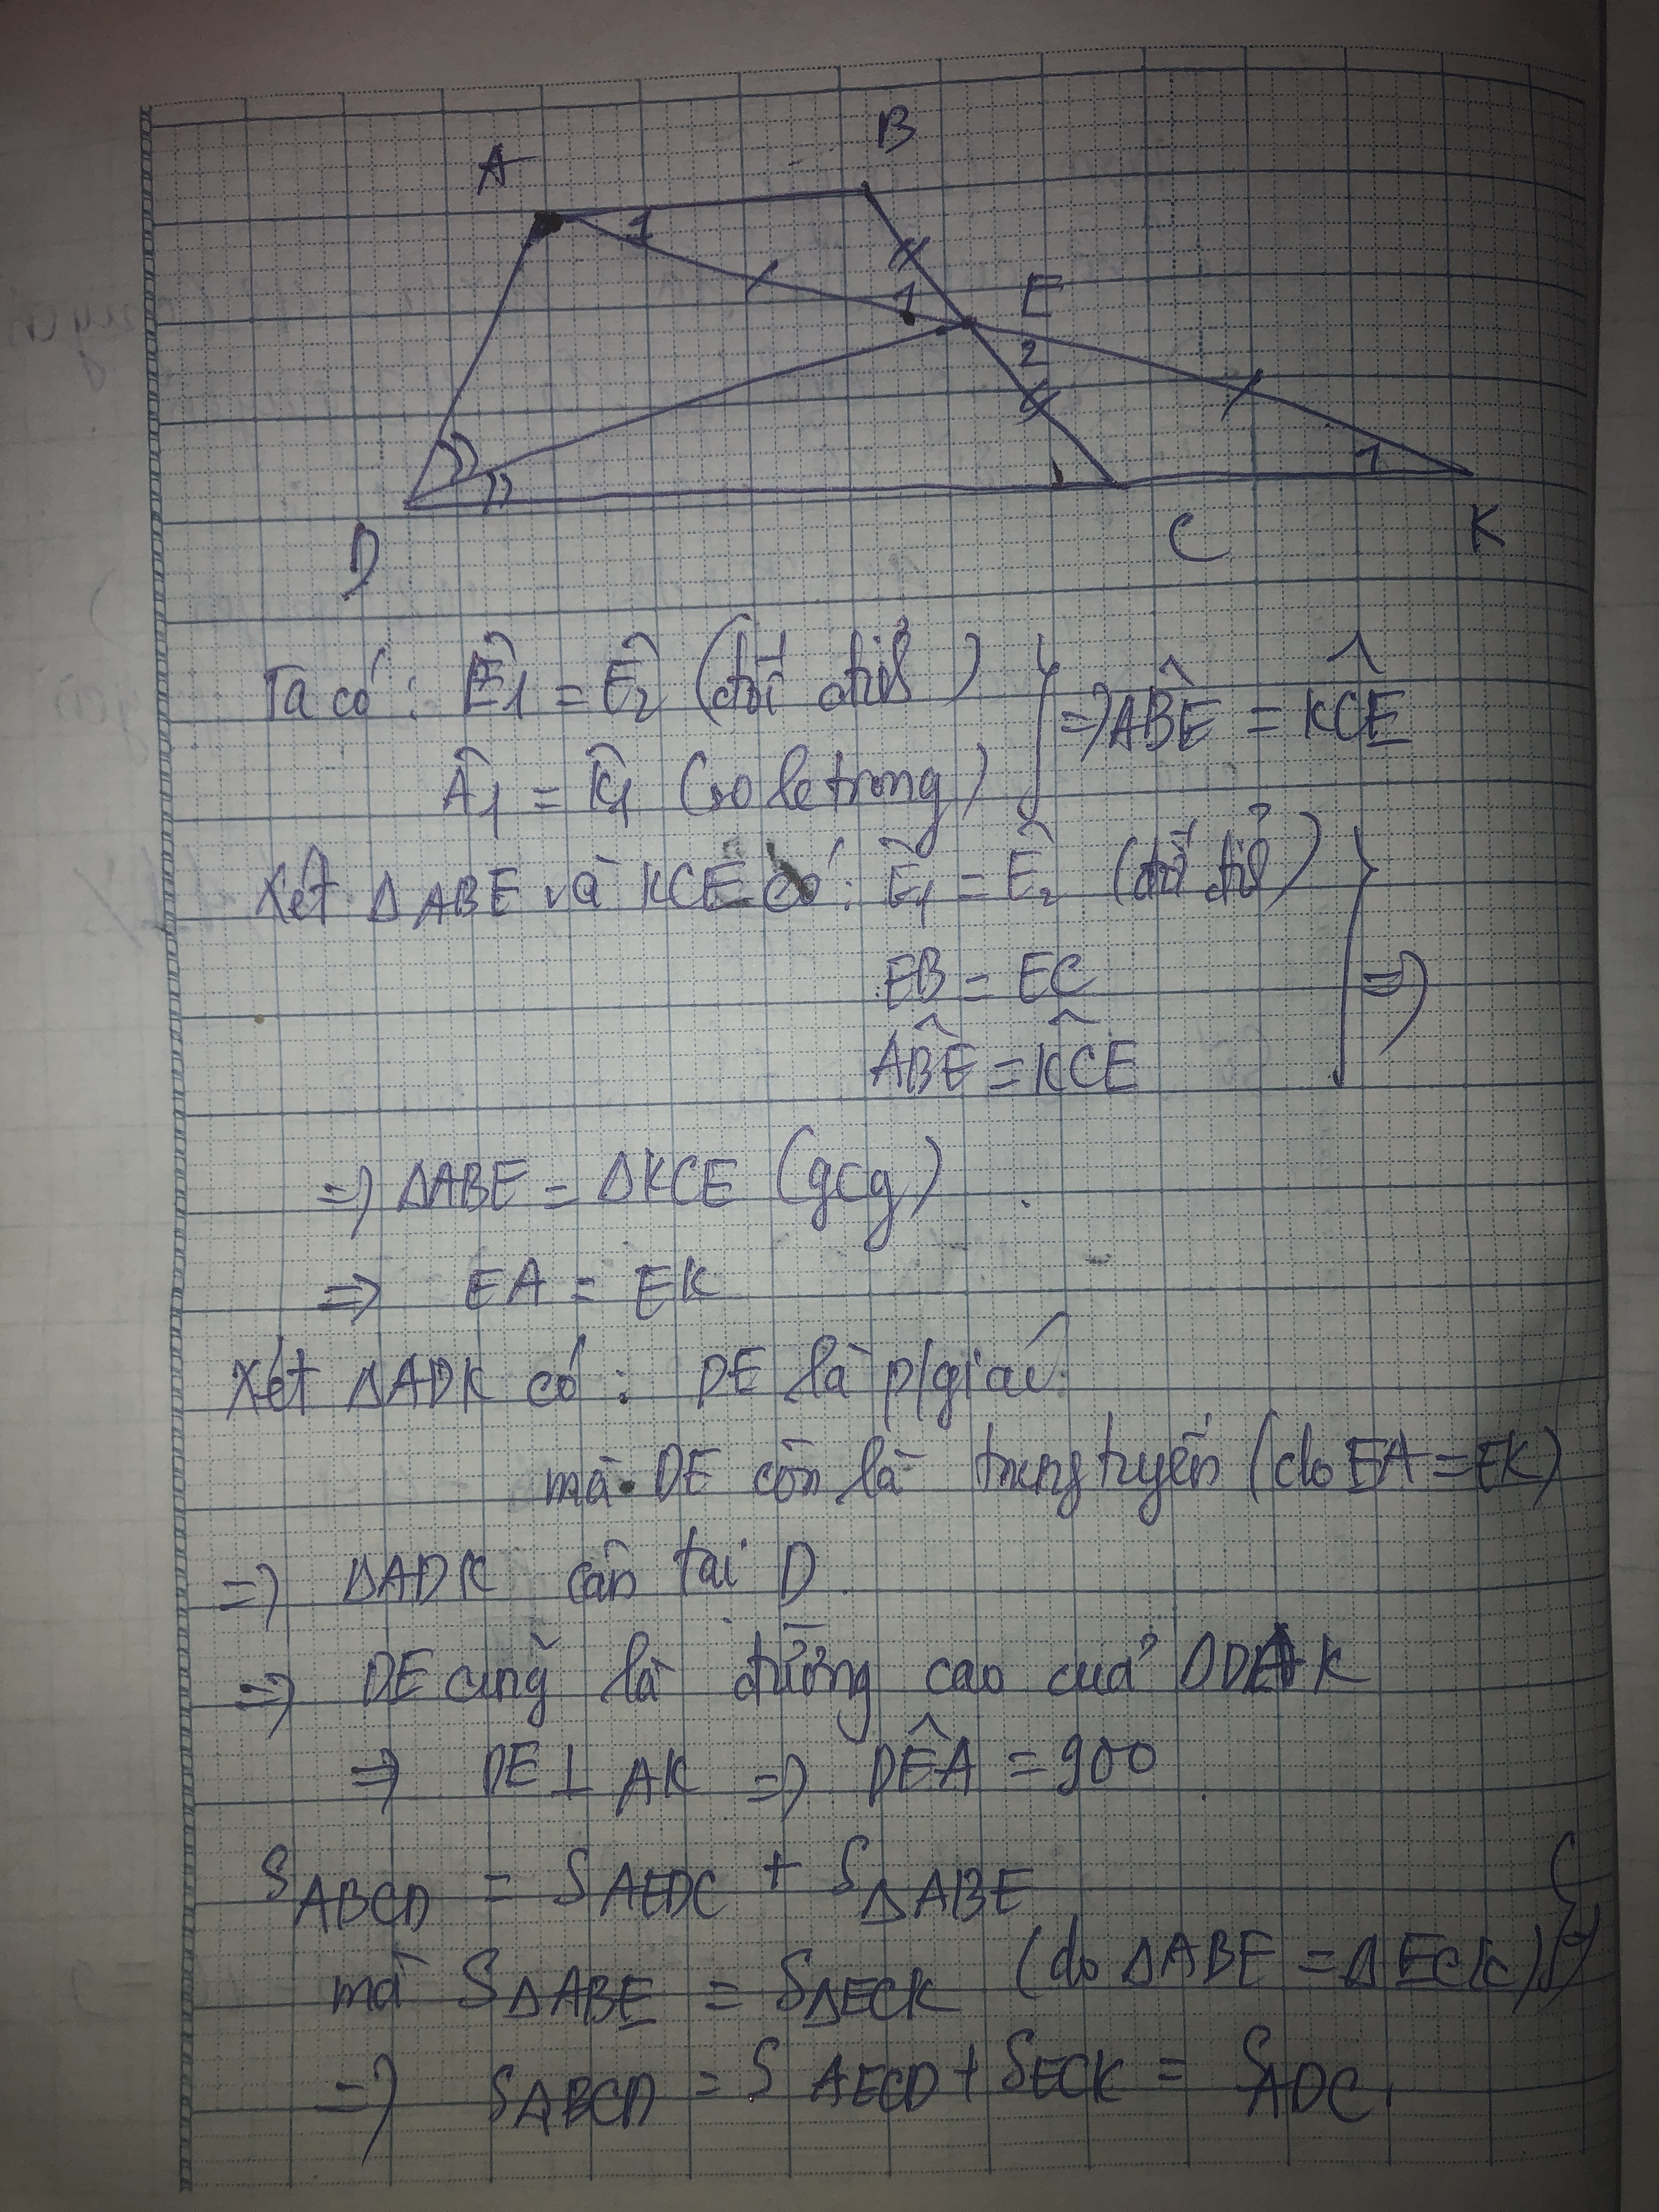 A
B
1
1
E
2
1
D
C
K
Ta có: Ê1 = Ê2 (đối đỉnh) } => ABÊ = KCÊ
Â1 = K̂1 (so le trong)
Xét ΔABE và KCE có: Ê1 = Ê2 (đối đỉnh) } =>
EB = EC
AB̂E = KĈE
=> ΔABE = ΔKCE (gcg)
=> EA = EK
Xét ΔADK có: DE là p/giác
mà DE còn là trung tuyến (do EA = EK)
=> ΔADK cân tại D.
=> DE cũng là đường cao của ΔDAK
=> DE ⊥ AK => DÊA = 900
SABCD = SAEDC + SΔABE
mà SΔABE = SΔECK (do ΔABE = ΔECK) } =>
=> SABCD = SAECD + SECK = SADC.